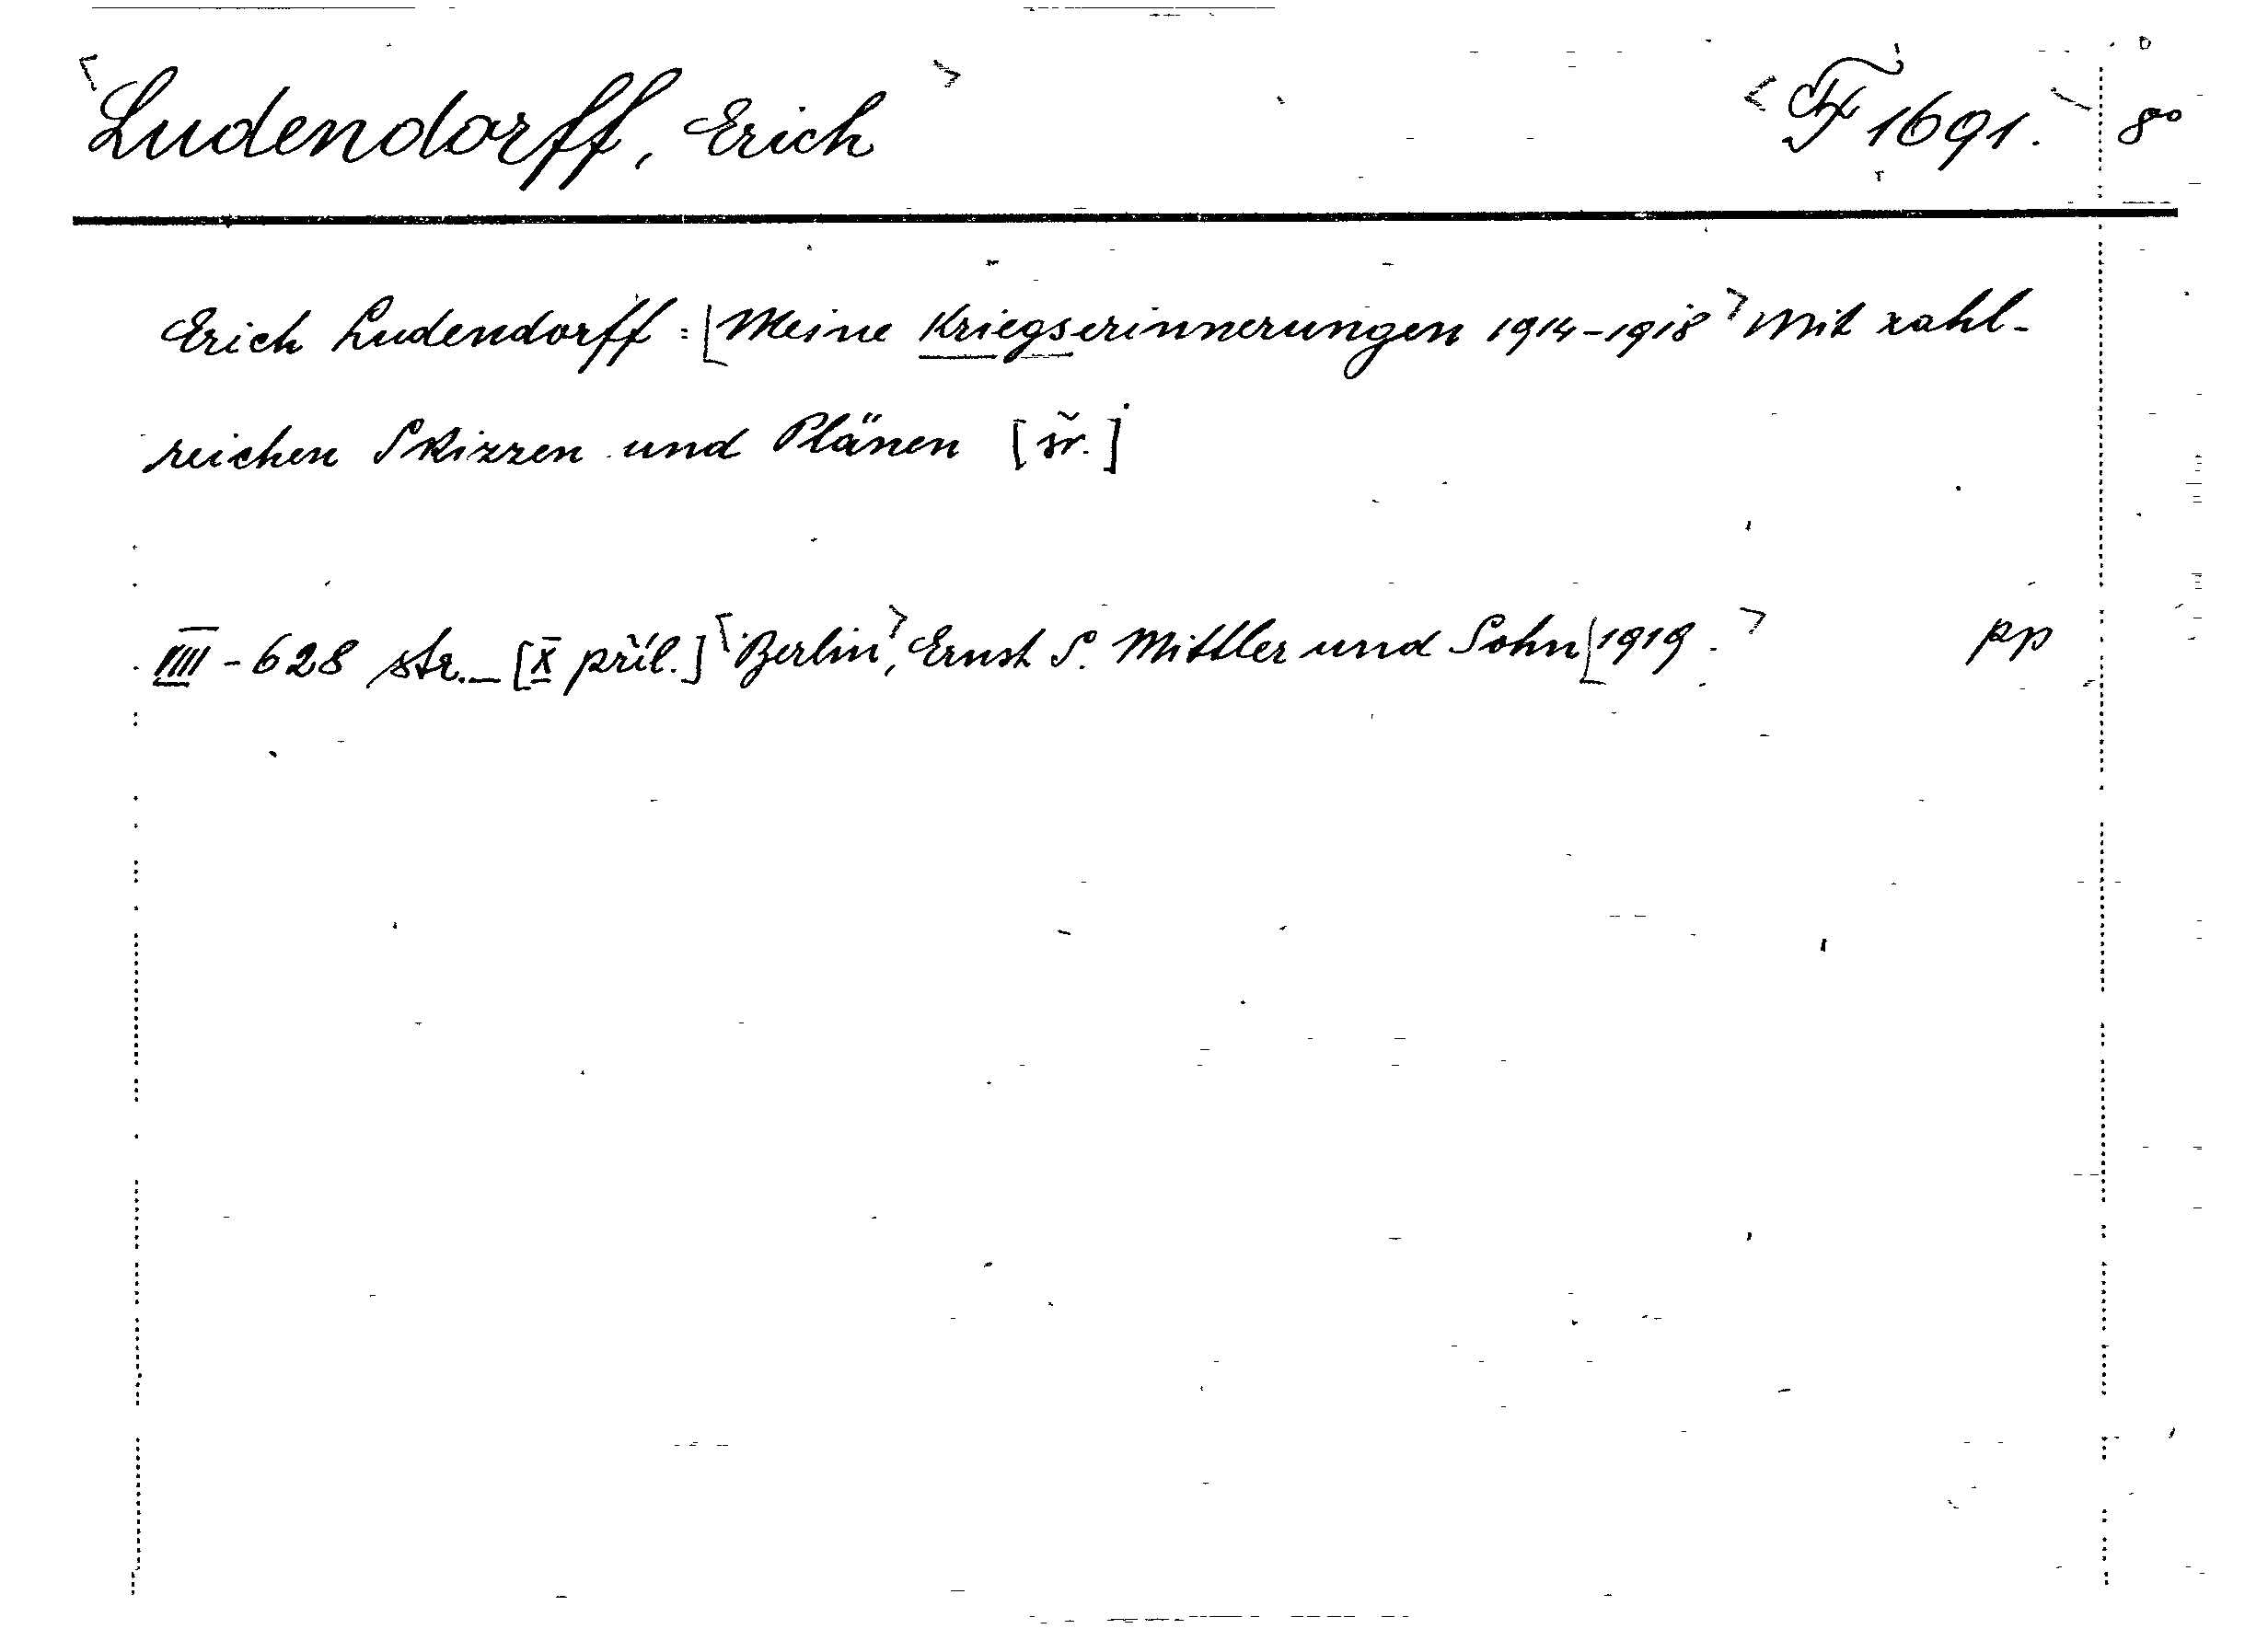 Ludendorff, Erich F 1691. 8°
Erich Ludendorff: [Meine Kriegserinnerungen 1914-1918] Mit zahl-
reichen Skizzen und Plänen [šv.]
VIII - 628 str. _ [X příl.] [Berlin], Ernst S. Mittler und Sohn [1919.] pp